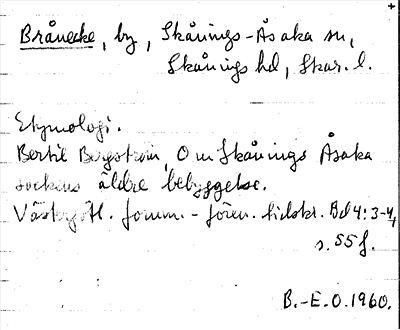 Brånecke, by, Skånings-Åsaka sn,
Skånings hd, Skar. l.
Etymologi.
Bertil Bergström, Om Skånings Åsaka
sockens äldre bebyggelse.
Västergötl. fornm.-fören. tidskr. Bd 4: 3-4,
s. 55 f.
B.-E.O. 1960.